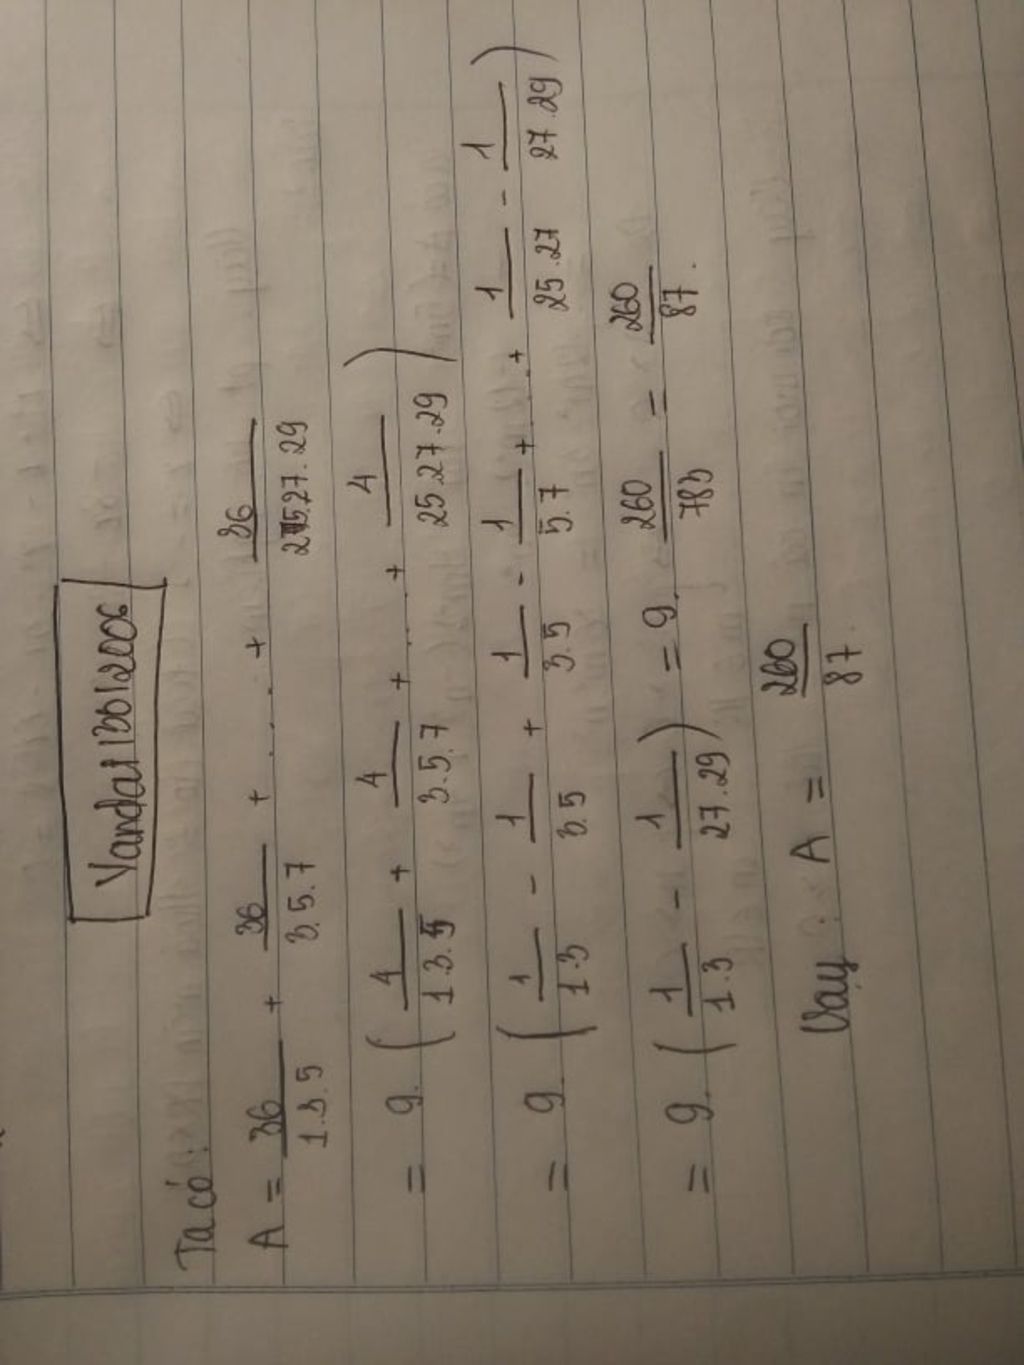 Yanda113012006
Ta có:
A = 36/1.3.5 + 36/3.5.7 + .... + 36/25.27.29
= 9. ( 4/1.3.5 + 4/3.5.7 + .... + 4/25.27.29 )
= 9. ( 1/1.3 - 1/3.5 + 1/3.5 - 1/5.7 + .. + 1/25.27 - 1/27.29 )
= 9. ( 1/1.3 - 1/27.29 ) = 9. 260/783 = 260/87.
Vậy: A = 260/87